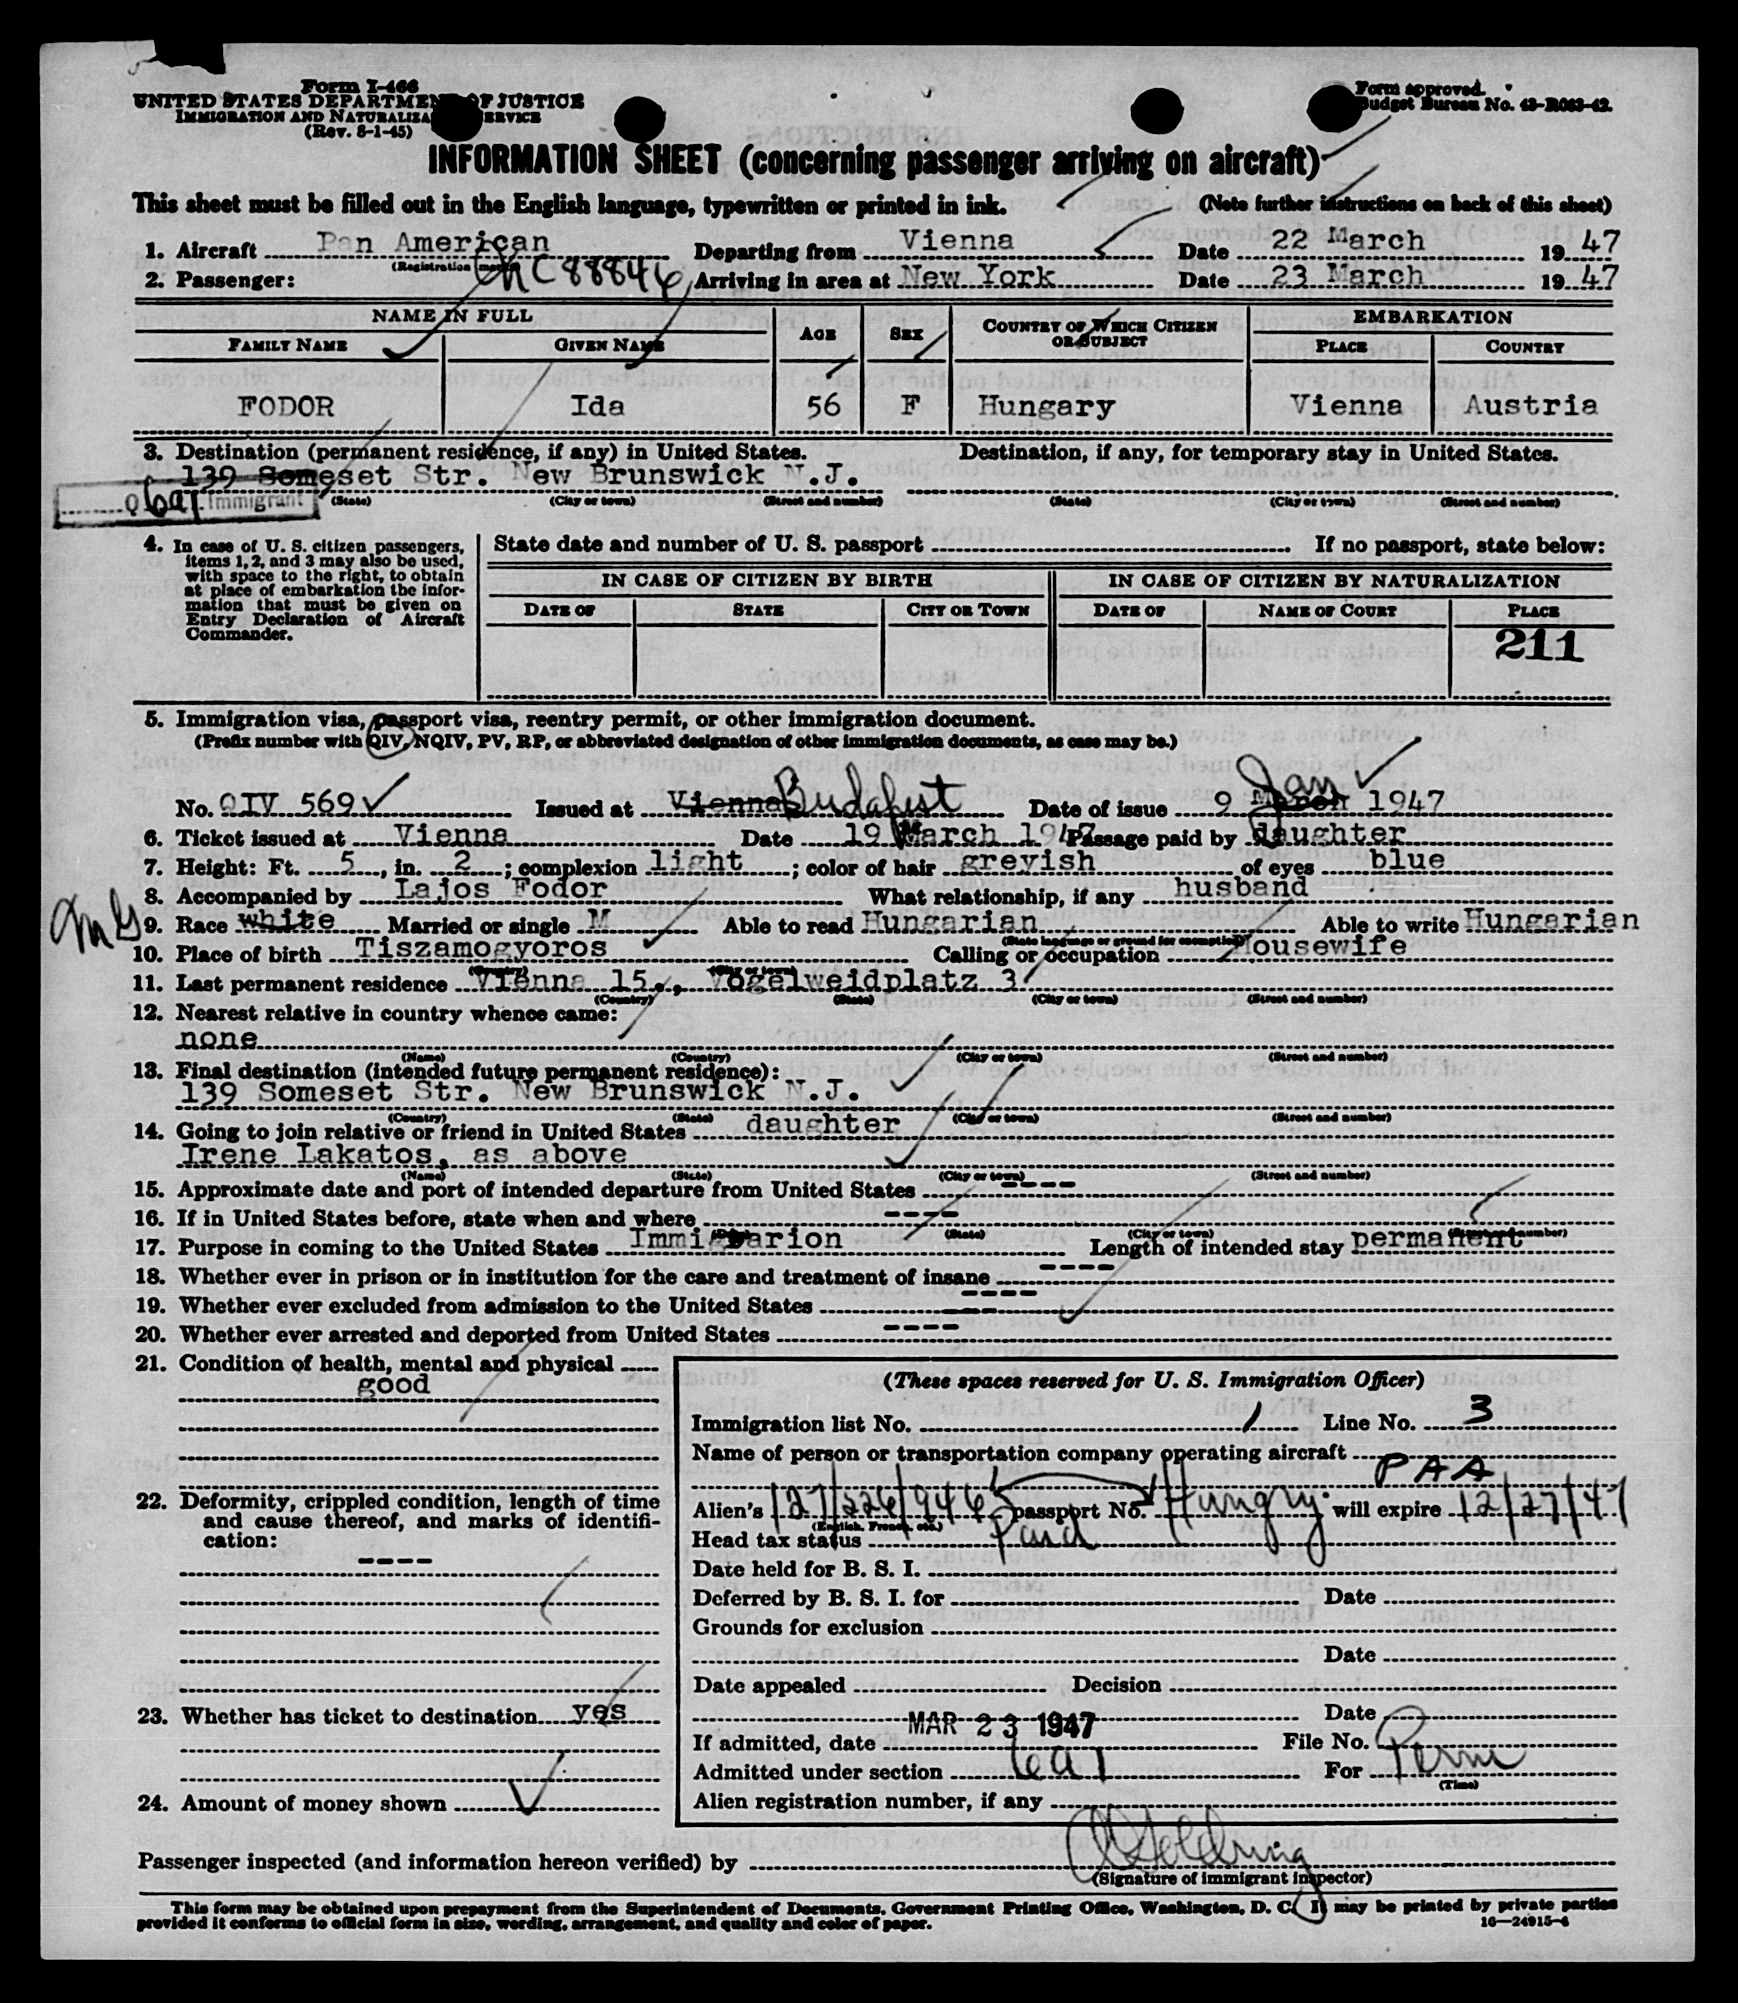 Form I-466
UNITED STATES DEPARTMENT OF JUSTICE
IMMIGRATION AND NATURALIZATION SERVICE
(Rev. 8-1-45)
Form approved.
Budget Bureau No. 43-R063-42.
INFORMATION SHEET (concerning passenger arriving on aircraft)
This sheet must be filled out in the English language, typewritten or printed in ink. (Note further instructions on back of this sheet)
1. Aircraft Pan American Departing from Vienna Date 22 March 1947
(Registration mark) NC 88846
2. Passenger: Arriving in area at New York Date 23 March 1947
NAME IN FULL AGE SEX COUNTRY OF WHICH CITIZEN OR SUBJECT EMBARKATION
FAMILY NAME GIVEN NAME PLACE COUNTRY
FODOR Ida 56 F Hungary Vienna Austria
3. Destination (permanent residence, if any) in United States. Destination, if any, for temporary stay in United States.
139 Someset Str. New Brunswick N.J.
(State) (City or town) (Street and number) (State) (City or town) (Street and number)
Q 6a1 Immigrant
4. In case of U. S. citizen passengers, items 1, 2, and 3 may also be used, with space to the right, to obtain at place of embarkation the information that must be given on Entry Declaration of Aircraft Commander.
State date and number of U. S. passport If no passport, state below:
IN CASE OF CITIZEN BY BIRTH IN CASE OF CITIZEN BY NATURALIZATION
DATE OF STATE CITY OR TOWN DATE OF NAME OF COURT PLACE
211
5. Immigration visa, passport visa, reentry permit, or other immigration document.
(Prefix number with QIV, NQIV, PV, RP, or abbreviated designation of other immigration documents, as case may be.)
No. QIV 569 Issued at Vienna Budapest Date of issue 9 March Jan 1947
6. Ticket issued at Vienna Date 19 March 1947 Passage paid by daughter
7. Height: Ft. 5, in. 2; complexion light; color of hair greyish of eyes blue
8. Accompanied by Lajos Fodor What relationship, if any husband
9. Race white Married or single M Able to read Hungarian Able to write Hungarian
(State language or ground for exemption)
10. Place of birth Tiszamogyoros Calling or occupation Housewife
(Country) (City or town)
11. Last permanent residence Vienna 15., Vogelweidplatz 3
(Country) (State) (City or town) (Street and number)
12. Nearest relative in country whence came:
none
(Name) (Country) (City or town) (Street and number)
13. Final destination (intended future permanent residence):
139 Someset Str. New Brunswick N.J.
(Country) (State) (City or town) (Street and number)
14. Going to join relative or friend in United States daughter
Irene Lakatos, as above
(Name) (State) (City or town) (Street and number)
15. Approximate date and port of intended departure from United States ----
16. If in United States before, state when and where ----
(State) (City or town) (Street and number)
17. Purpose in coming to the United States Immigrarion Length of intended stay permanent
18. Whether ever in prison or in institution for the care and treatment of insane ----
19. Whether ever excluded from admission to the United States ----
20. Whether ever arrested and deported from United States ----
21. Condition of health, mental and physical
good
22. Deformity, crippled condition, length of time and cause thereof, and marks of identification:
----
23. Whether has ticket to destination yes
24. Amount of money shown
(These spaces reserved for U. S. Immigration Officer)
Immigration list No. 1 Line No. 3
Name of person or transportation company operating aircraft
PAA
Alien's 127/226/946 passport No. Hungry will expire 12/27/47
(English, French, etc.)
Head tax status Paid
Date held for B. S. I.
Deferred by B. S. I. for Date
Grounds for exclusion
Date
Date appealed Decision
Date
If admitted, date MAR 23 1947 File No.
Admitted under section 6a1 For Perm
(Time)
Alien registration number, if any
Passenger inspected (and information hereon verified) by
(Signature of immigrant inspector)
This form may be obtained upon prepayment from the Superintendent of Documents, Government Printing Office, Washington, D. C. It may be printed by private parties
provided it conforms to official form in size, wording, arrangement, and quality and color of paper. 16—24915-4